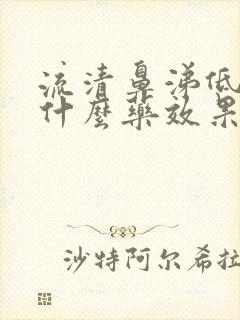 流清鼻涕低
什麼藥效果
沙特阿尔希拉